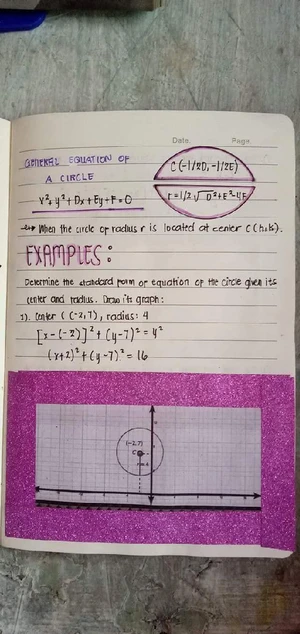 Date. Page.
GENERAL EQUATION OF
A CIRCLE
x²+y²+Dx+Ey+F=0
C(-1/2D, -1/2E)
r=1/2√D²+E²-4F
When the circle of radius r is located at center C(h,k).
EXAMPLES:
Determine the standard form of equation of the circle given its
center and radius. Draw its graph:
1). Center C(-2,7), radius: 4
[x-(-2)]²+(y-7)²=4²
(x+2)²+(y-7)²=16
(-2,7)
C